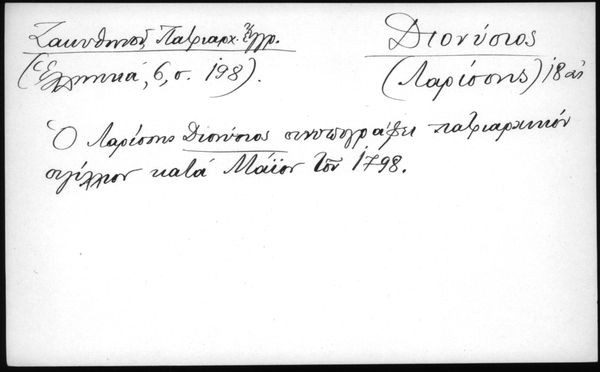 Ζακυθηνοῦ, Πατριαρχ. Ἔγγρ.
(Ἑλληνικά, 6, σ. 198).
Διονύσιος
(Λαρίσσης) 18 αἰ
Ὁ Λαρίσσης Διονύσιος συνυπογράφει πατριαρχικόν
σιγίλλιον κατά Μάϊον τοῦ 1798.